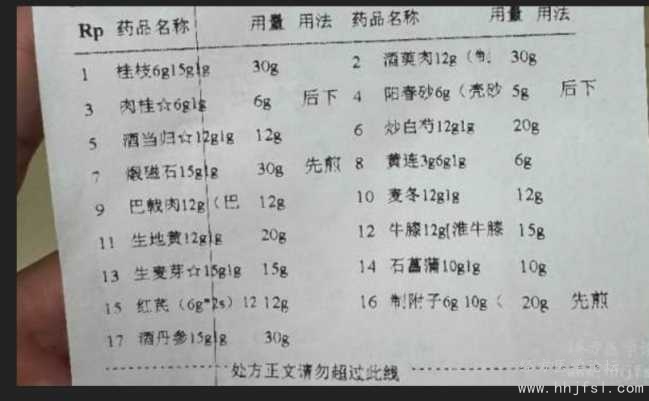 Rp 药品名称 用量 用法 药品名称 用量 用法
1 桂枝6g15g1g 30g 2 酒萸肉12g（制 30g
3 肉桂☆6g1g 6g 后下 4 阳春砂6g（壳砂 5g 后下
5 酒当归☆12g1g 12g 6 炒白芍12g1g 20g
7 煅磁石15g1g 30g 先煎 8 黄连3g6g1g 6g
9 巴戟肉12g（巴 12g 10 麦冬12g1g 12g
11 生地黄12g1g 20g 12 牛膝12g[淮牛膝 15g
13 生麦芽☆15g1g 15g 14 石菖蒲10g1g 10g
15 红芪（6g*2s）12 12g 16 制附子6g 10g（ 20g 先煎
17 酒丹参15g1g 30g
处方正文请勿超过此线
www.hhjfsl.com